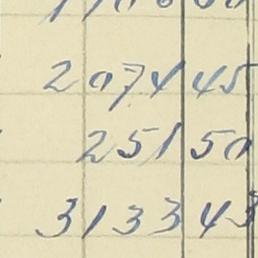 2074 45
251 50
3133 43